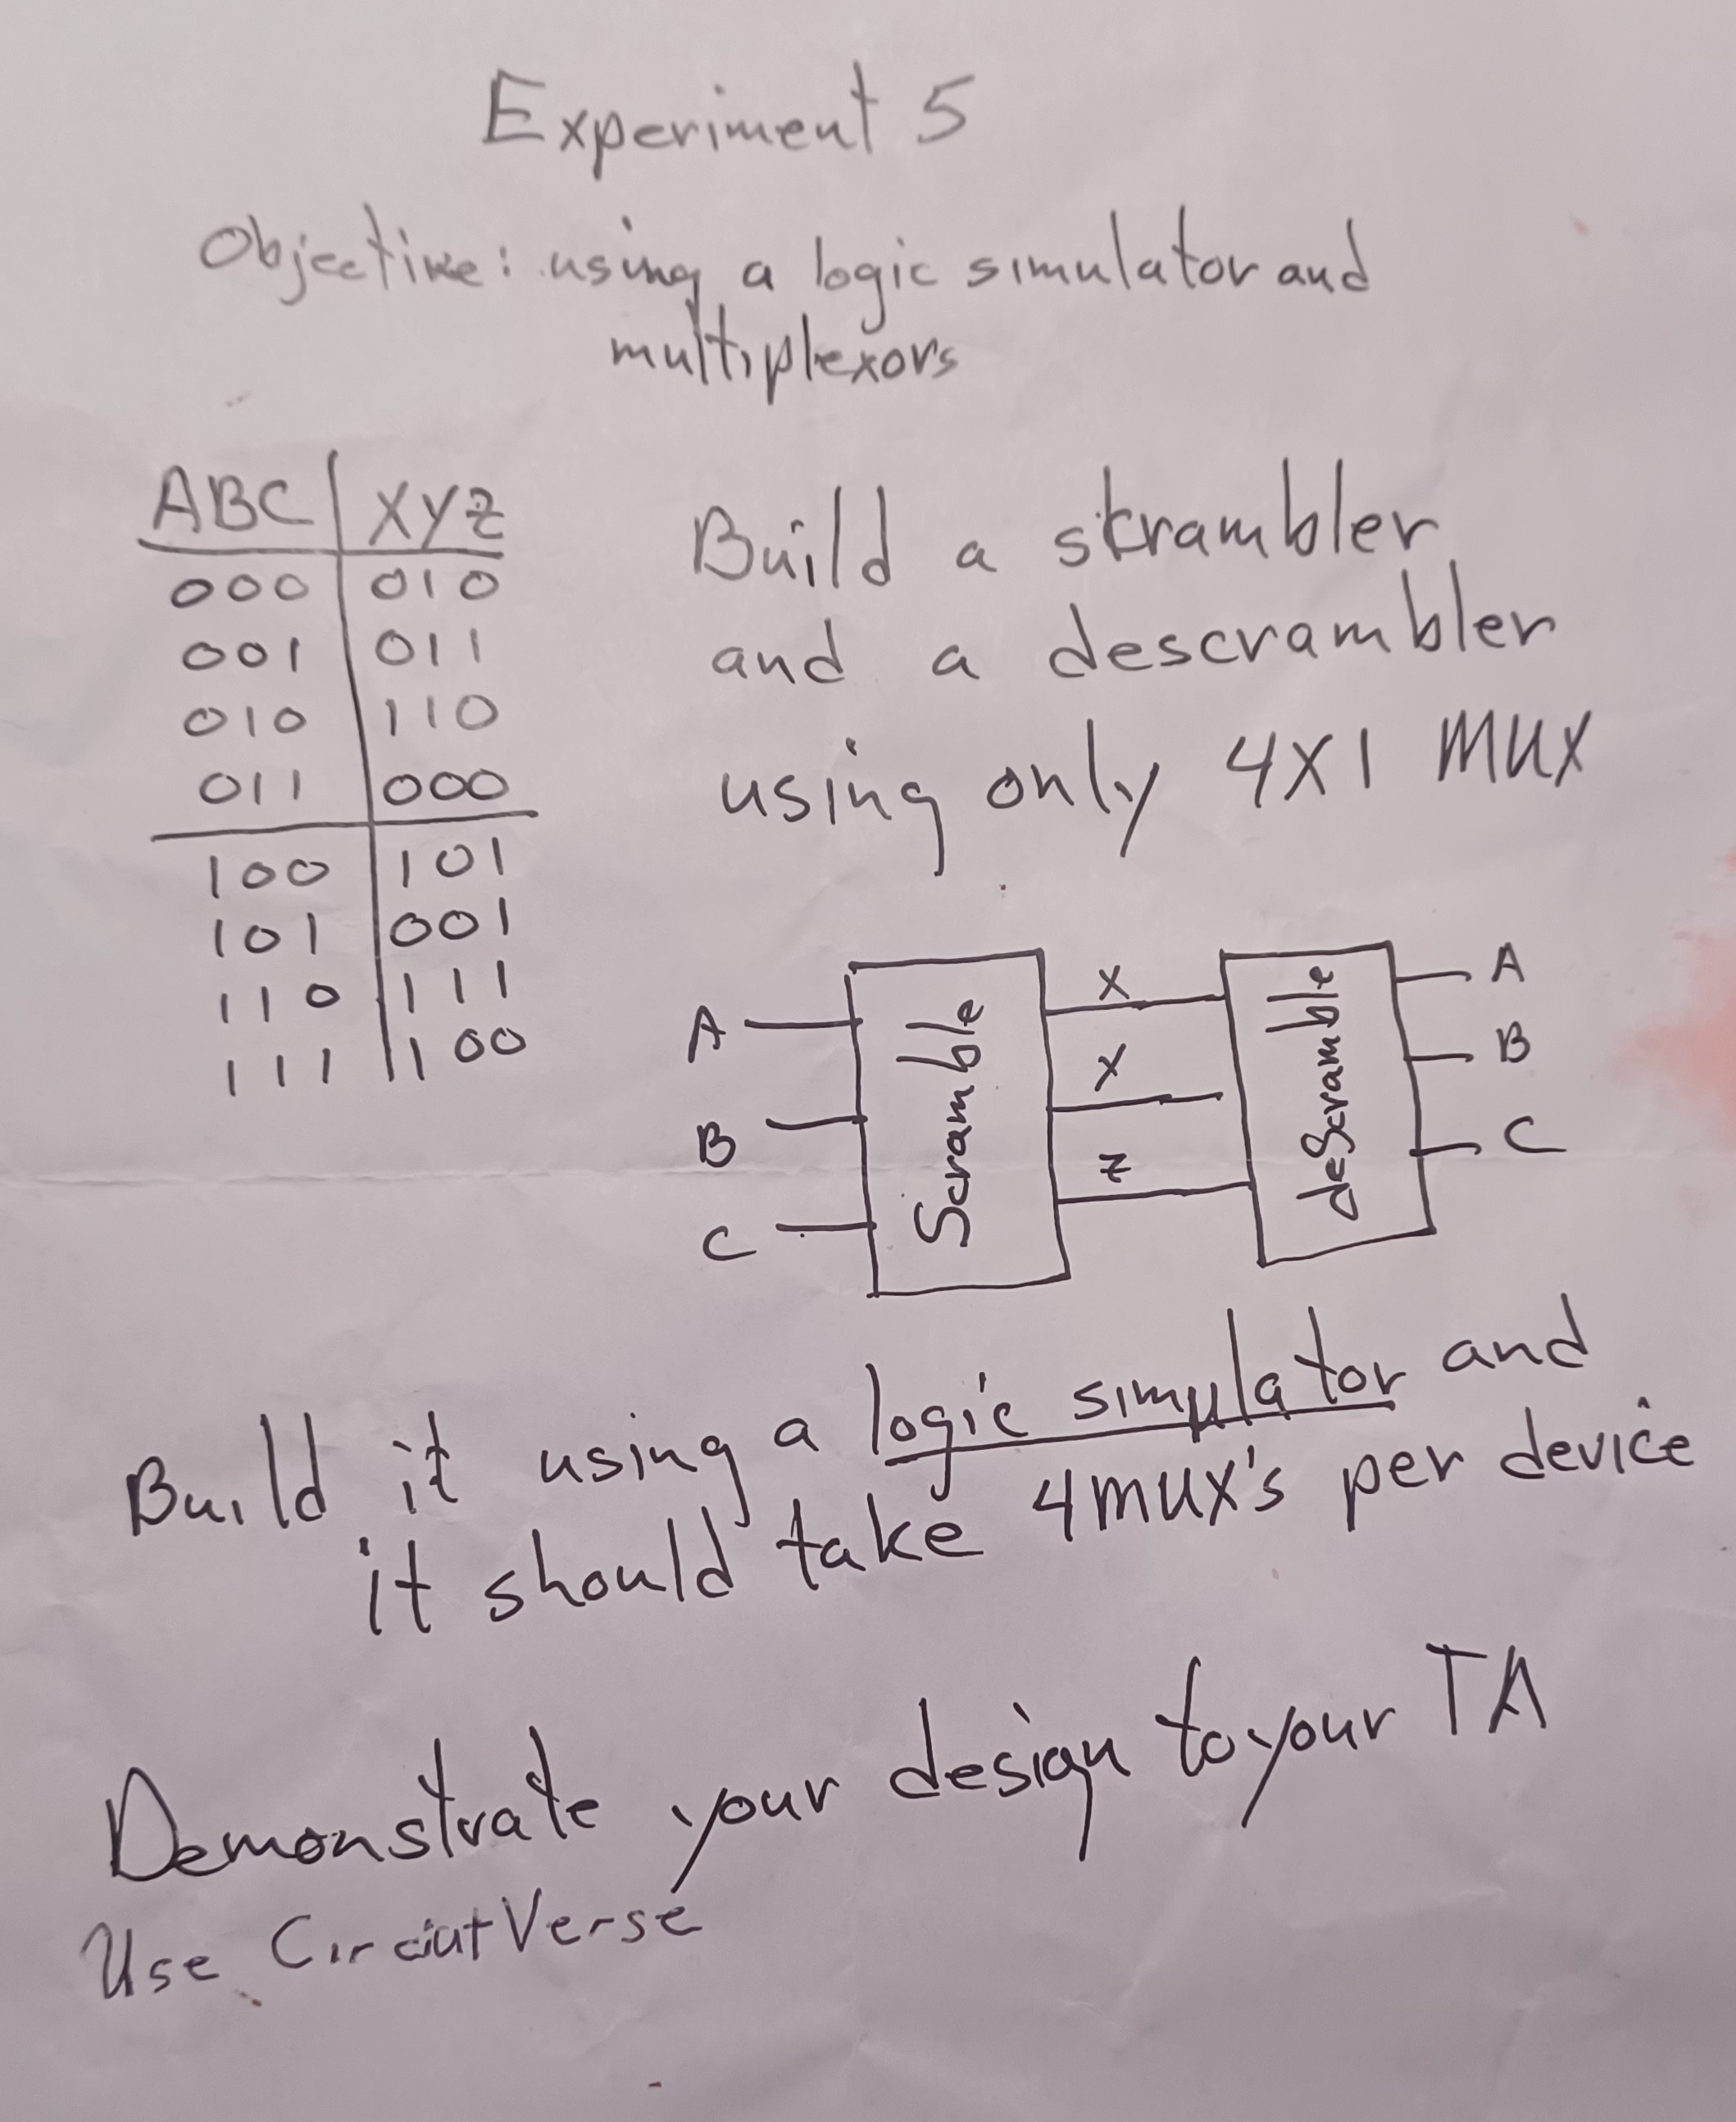 Experiment 5
Objective: using a logic simulator and
multiplexors
ABC XYZ
000 010
001 011
010 110
011 000
100 101
101 001
110 111
111 100
Build a skrambler
and a descrambler
using only 4X1 MUX
A
B
C
Scramble
X
X
Z
deScramble
A
B
C
Build it using a logic simulator and
it should take 4 mux's per device
Demonstrate your design to your TA
Use CircuitVerse